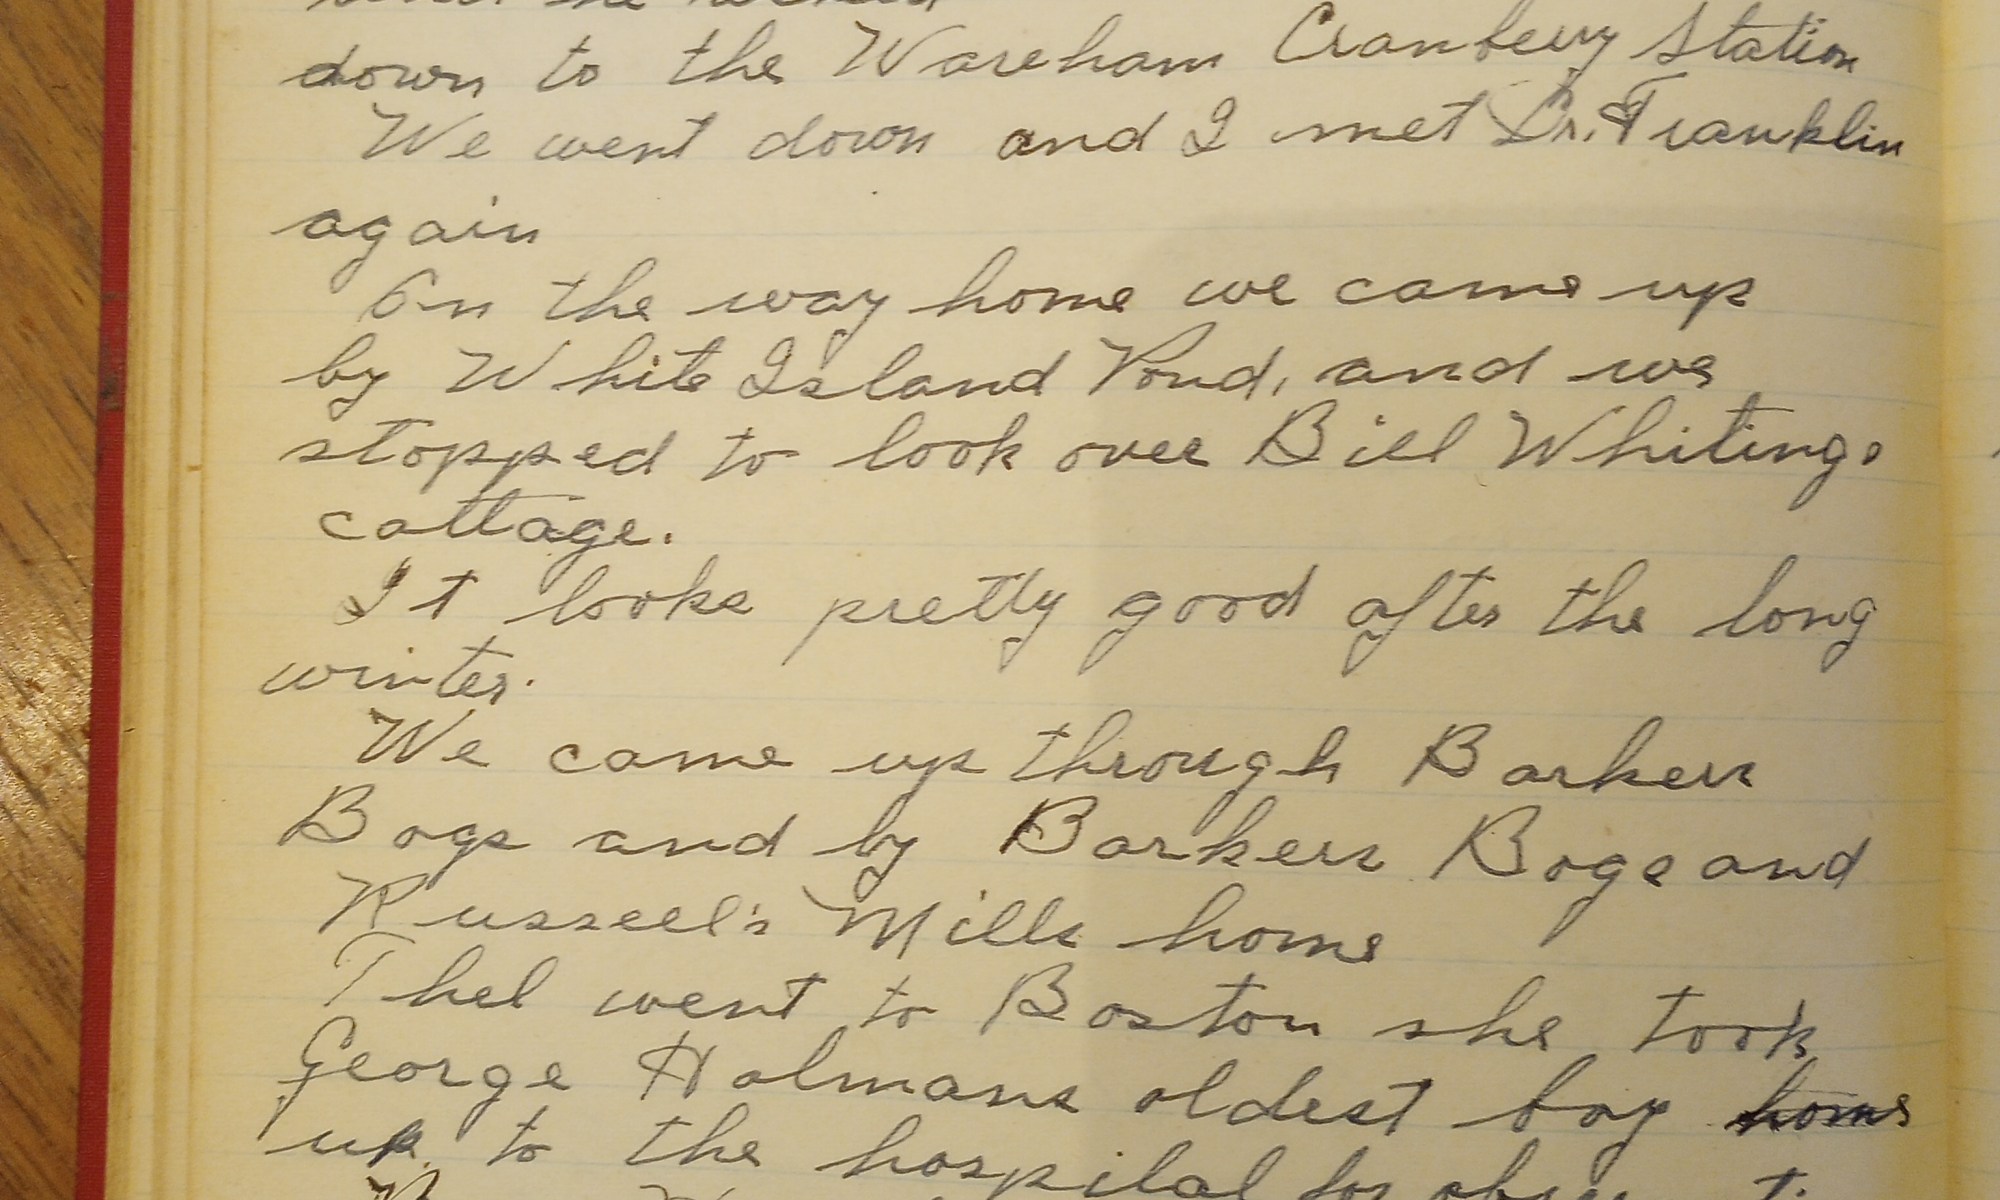 down to the Wareham Cranberry Station
We went down and I met Dr. Franklin
again
On the way home we came up
by White Island Pond, and we
stopped to look over Bill Whitings
cottage.
It looks pretty good after the long
winter.
We came up through Barkers
Bogs and by Barkers Bogs and
Russell's Mills home
Thel went to Boston she took
George Holmans oldest boy home
up to the hospital for